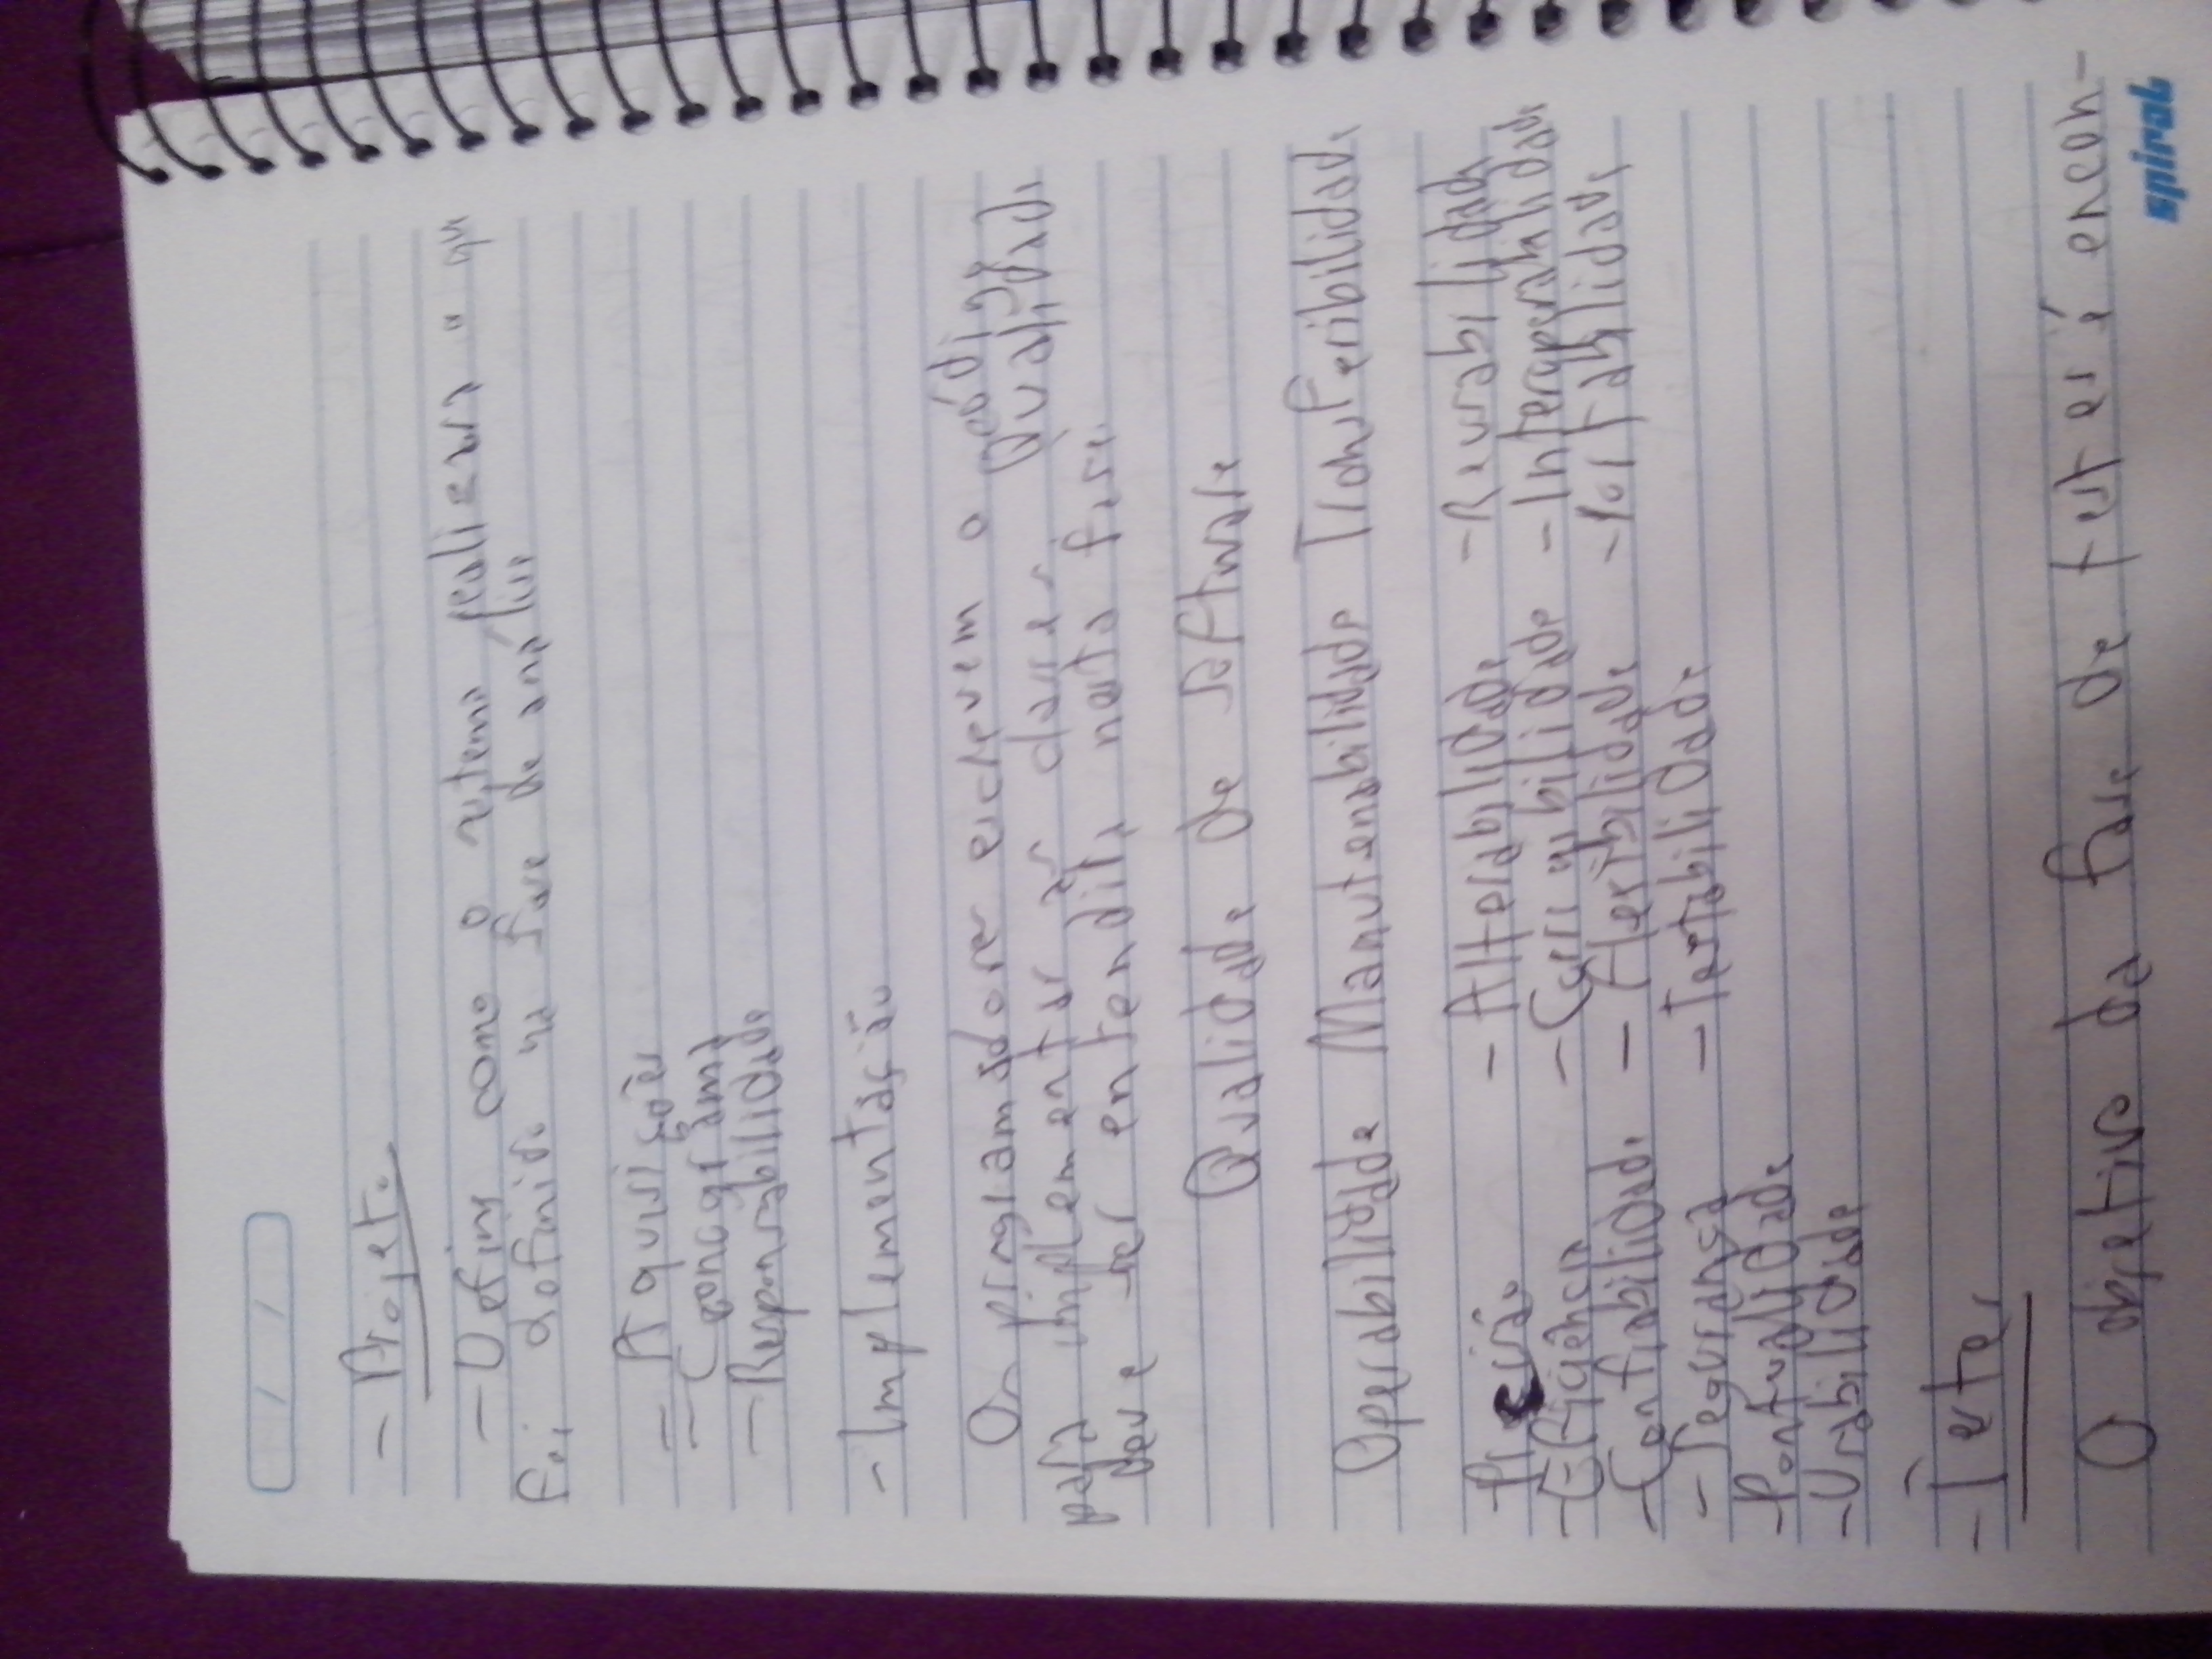 - Projeto
- Define como o sistema realizará o que
foi definido na fase de análise
- Aquisições
- Cronograma
- Responsabilidade
- Implementação
Os programadores escrevem o código
para implementar as classes. Qualidade
deve ser entendida nesta fase.
Qualidade de software
Operabilidade Manutenabilidade Transferibilidade
- Precisão - Alterabilidade - Reusabilidade
- Eficiência - Corrigibilidade - Interoperabilidade
- Confiabilidade - Flexibilidade - Portabilidade
- Segurança - Testabilidade
- Pontualidade
- Usabilidade
- Testes
O objetivo da fase de testes é encon-
spiral